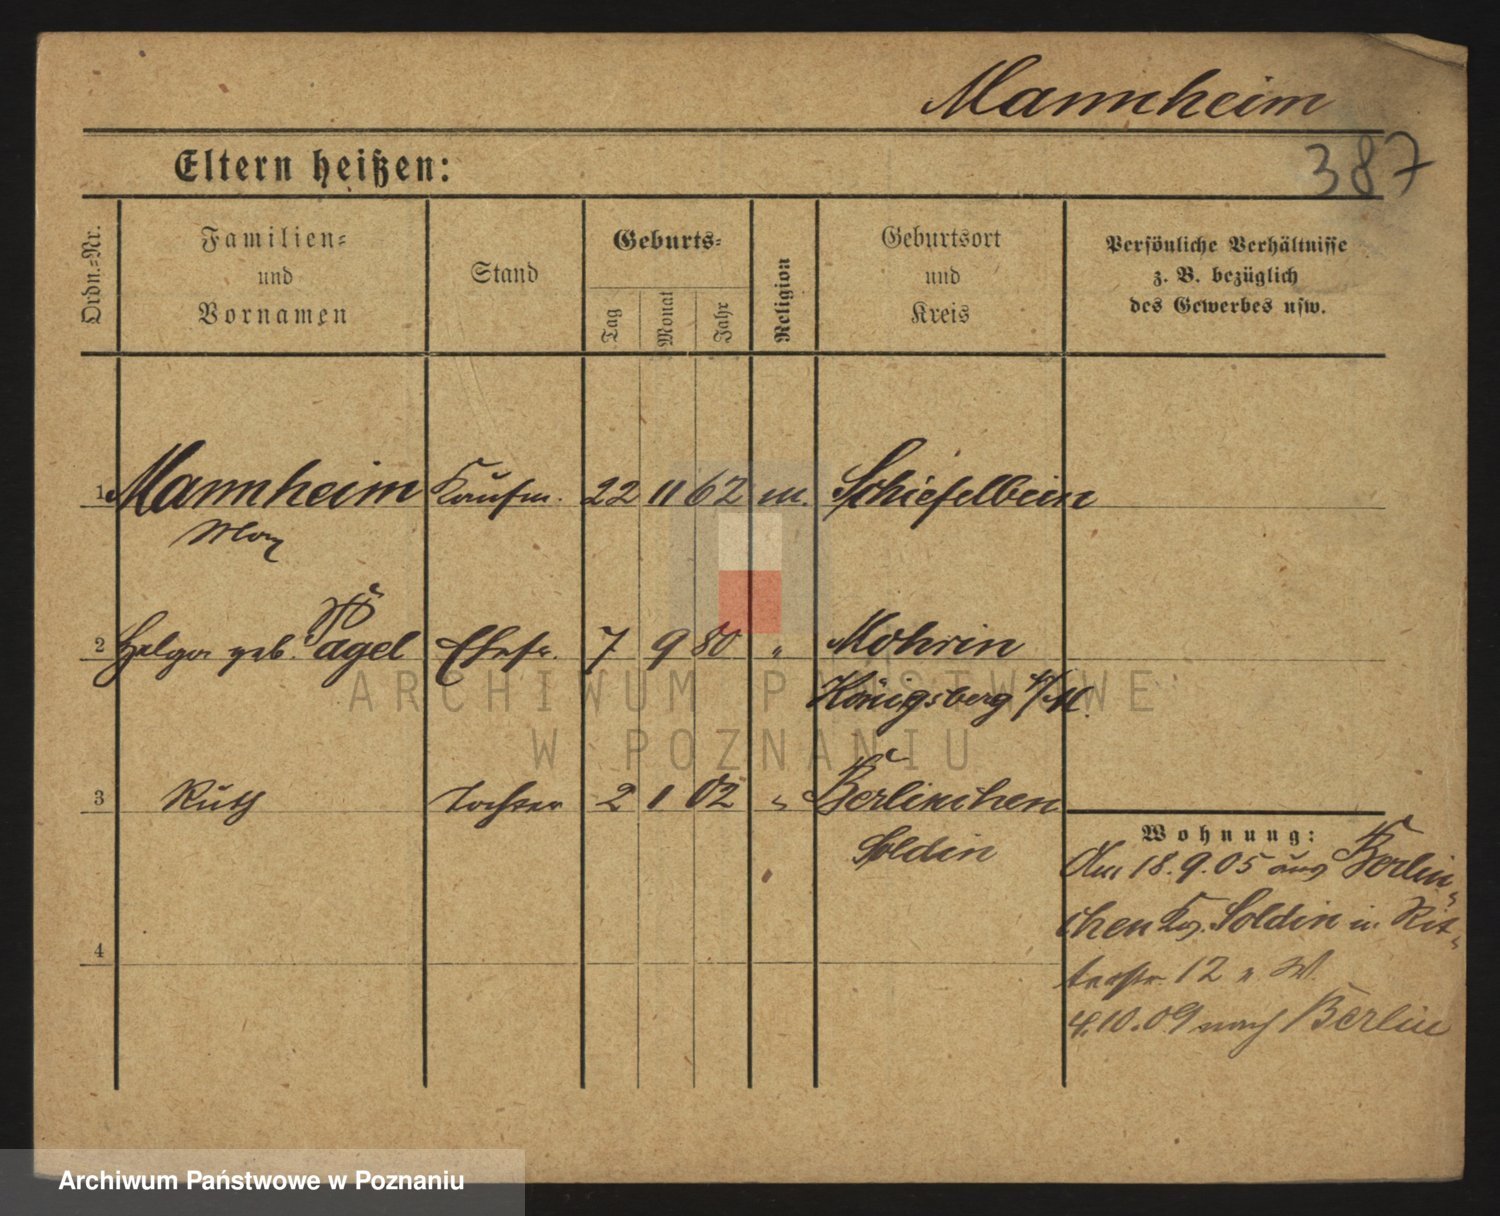 Mannheim
387
Eltern heißen:
Ordn.-Nr.
Familien-
und
Vornamen
Stand
Geburts-
Tag
Monat
Jahr
Religion
Geburtsort
und
Kreis
Persönliche Verhältnisse
z. B. bezüglich
des Gewerbes usw.
1 Mannheim Kaufm. 22 11 62 m. Schiefelbein
Max
2 Helga geb. Pagel Ehefr. 7 9 80 " Mohrin
Königsberg N/M.
3 Ruth Tochter 2 1 02 " Berlinchen
Soldin
4
Wohnung:
Am 18.9.05 aus Berlin-
chen Kr. Soldin in Rit-
terstr. 12 v. W.
4.10.09 nach Berlin
ARCHIWUM PAŃSTWOWE
W POZNANIU
Archiwum Państwowe w Poznaniu